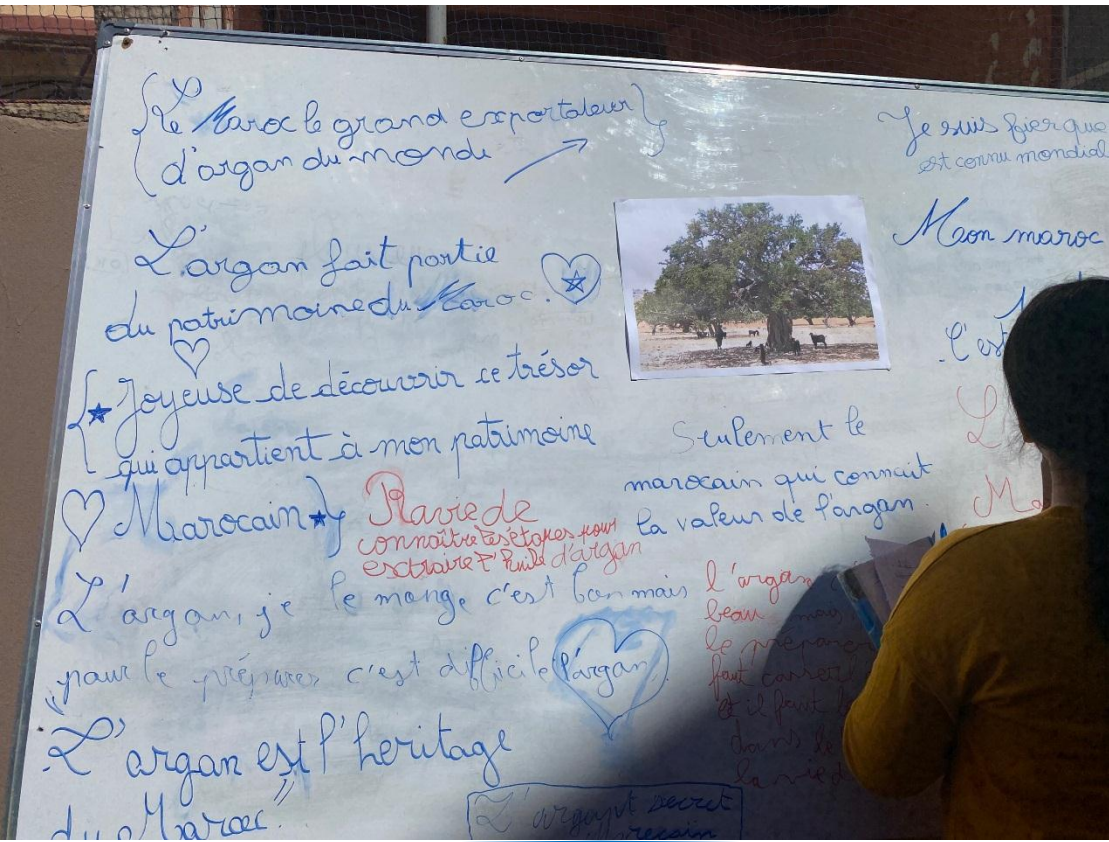 Le Maroc le grand exportateur
d'argan du monde
Je suis fier que
est connu mondial
L'argan fait partie
du patrimoine du Maroc.
Mon maroc
Joyeuse de découvrir ce trésor
qui appartient à mon patrimoine
Marocain
l'est
Seulement le
marocain qui connait
la valeur de l'argan.
Ravie de
connaître les étapes pour
extraire l'huile d'argan
L'argan, je le mange c'est bon mais
pour le préparer c'est difficile l'argan
l'argan
beau mais
le préparer
faut
et il faut
dans le
L'argan est l'heritage
du Maroc"
secret